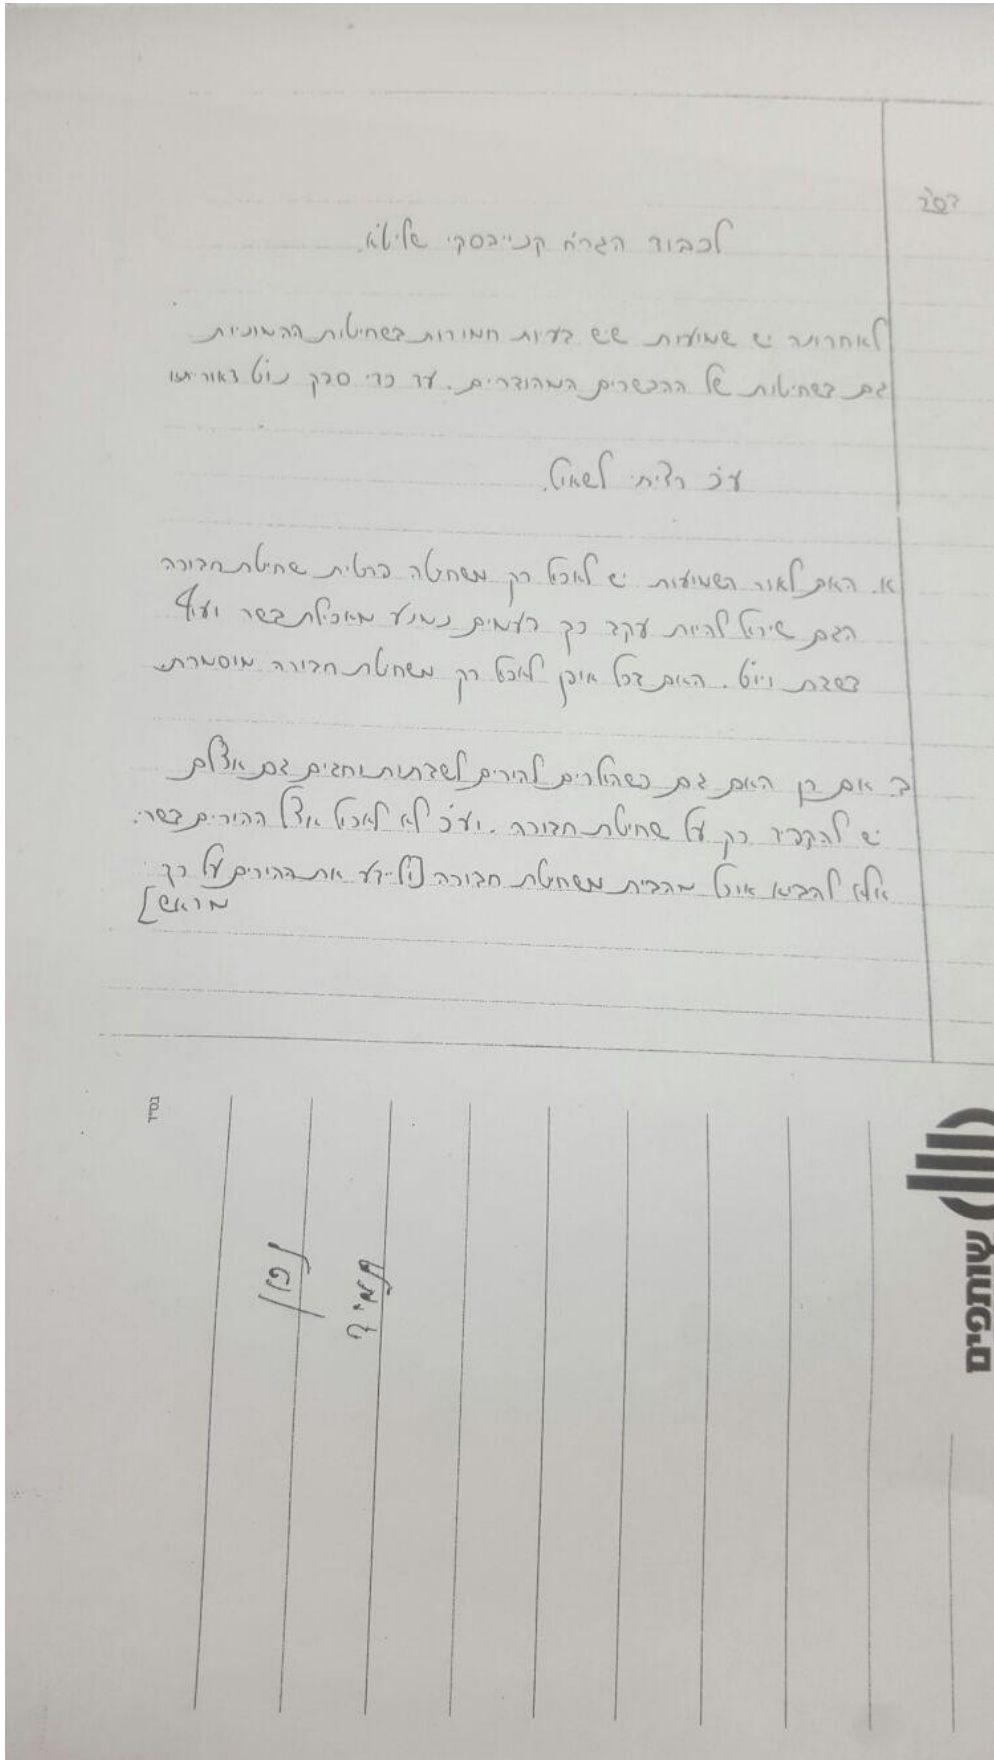 בס"ד
לכבוד הגר"ח קנייבסקי שליט"א.
לאחרונה יש שמועות שיש בעיות חמורות בשחיטות ההמוניות
גם בשחיטות של ההכשרים המהודרים. עד כדי ספק נו"ט דאורייתא
ע"כ רציתי לשאול.
א. האם לאור השמועות יש לאכול רק משחיטה פרטית שחיטת חבורה
הגם שיכול להיות עקב כך פעמים נמנע מאכילת בשר ועוף
בשבת ויו"ט. האם בכל אופן לאכול רק משחיטת חבורה מוסמכת.
ב. אם כן האם גם כשהולכים להורים לשבתות וחגים גם אצלם
יש להקפיד רק על שחיטת חבורה. וע"כ לא לאכול אצל ההורים בשר.
אלא להביא אוכל מהבית משחיטת חבורה [וליידע את ההורים על כך
מראש]
בס"ד
נכון